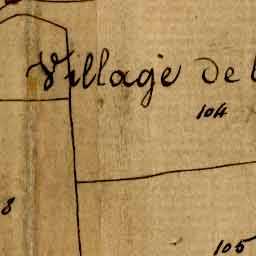 Village de
104
8
105